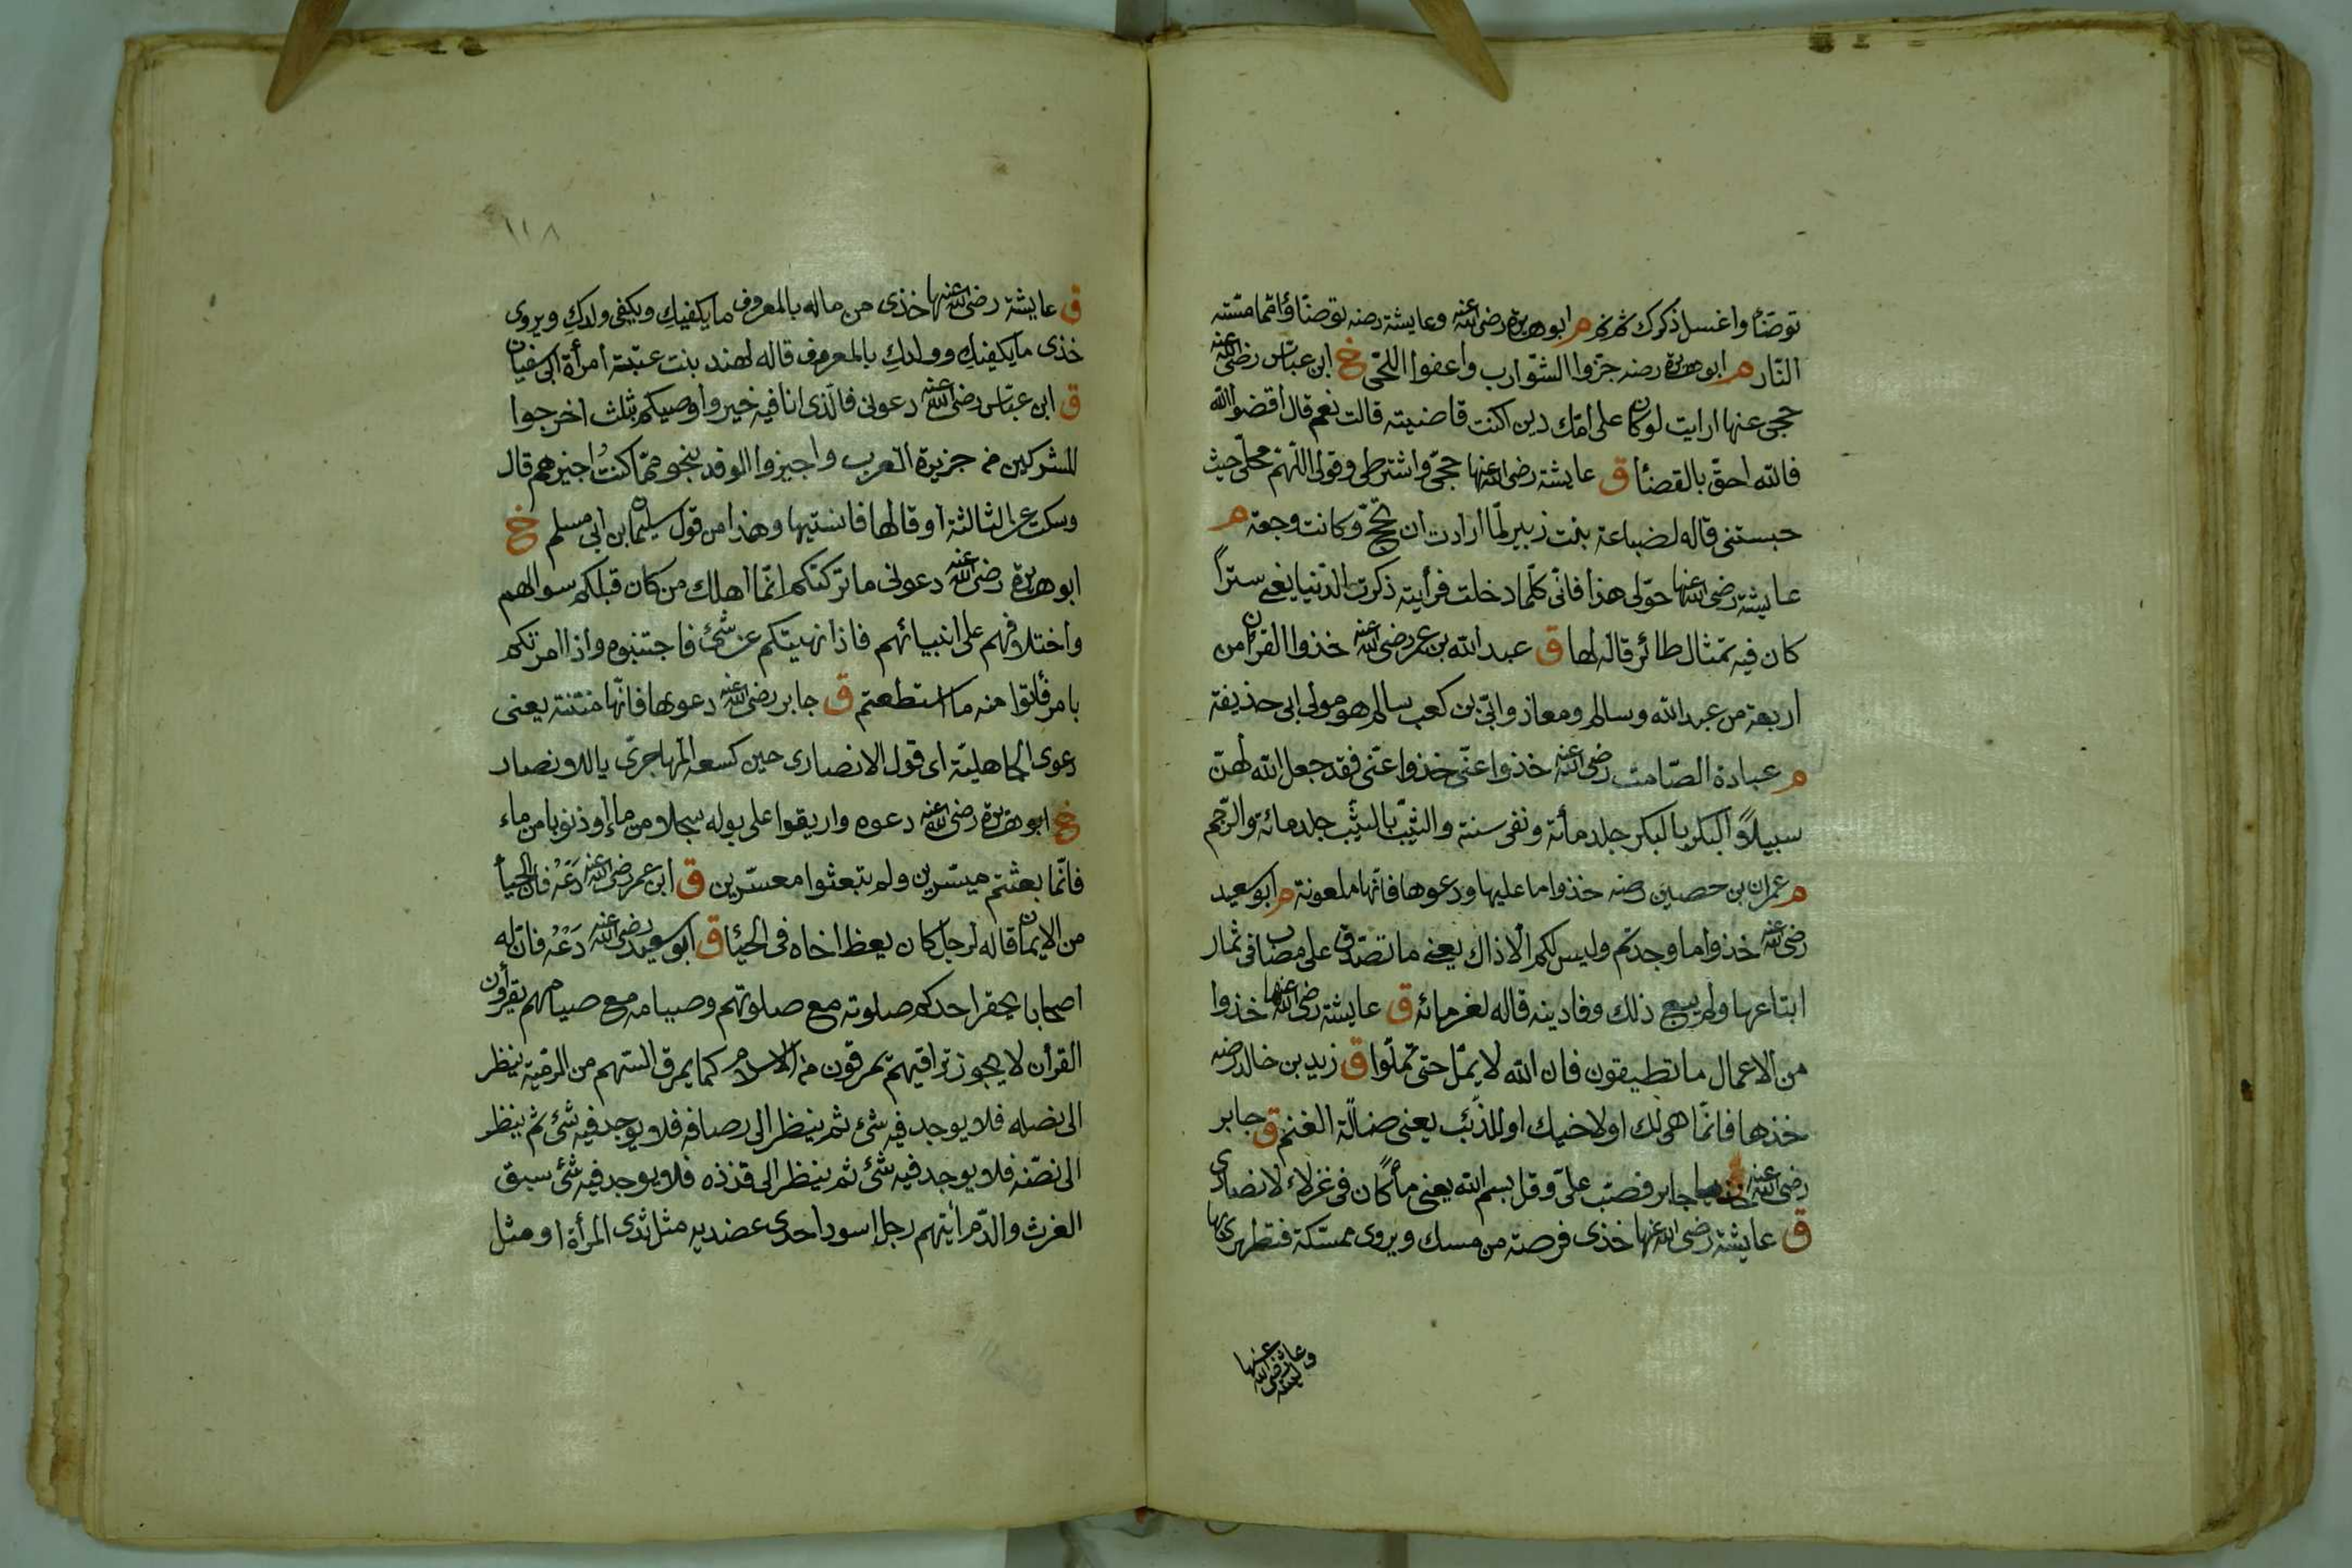 توضّأ واغسل ذكرك ثم نم م ابو هريرة رضى الله عنه وعايشة رضه توضّاؤا ممّا مسّته
النّار م ابو هريرة رضه جزّوا الشّوارب واعفوا اللّحى خ ابن عبّاس رضى الله عنه
حجى عنها ارايت لو كان على امّك دين اكنت قاضيته قالت نعم قال اقضوا الله
فالله احقّ بالقضأ ق عايشة رضى الله عنها حجّى واشترطى وقولى اللّهمّ محلّى حيث
حبستنى قاله لضباعة بنت زبير لمّا ارادت ان تحجّ وكانت وجعة م
عايشة رضى الله عنها حوّلى هذا فانّى كلّما دخلت فرأيته ذكرت الدّنيا يعنى سترًا
كان فيه تمثال طائر قاله لها ق عبد الله بن عمر رضى الله عنه خذوا القرآن من
اربعة من عبد الله وسالم ومعاذ وابىّ بن كعب سالم هو مولى ابى حذيفة
م عبادة الصّامت رضى الله عنه خذوا عنّى خذوا عنّى فقد جعل الله لهنّ
سبيلاً البكر بالبكر جلد مأئة ونفى سنة والثيّب بالثيّب جلد مائة والرّجم
م عمران بن حصين رضه خذوا ما عليها ودعوها فانّها ملعونة م ابو سعيد
رضى الله عنه خذوا ما وجدتم وليس لكم الّا ذاك يعنى ما تصدّق على مصاب فى ثمار
ابتاعها ولم يبيع ذلك وفا دينه قاله لغرمائه ق عايشة رضى الله عنها خذوا
من الاعمال ما تطيقون فان الله لا يملّ حتى تملّوا ق زيد بن خالد رضه
خذها فانّما هى لك او لاخيك او للذّئب يعنى ضالّة الغنم ق جابر
رضى الله عنه جابر فصبّ علىّ وقل بسم الله يعنى مأ كان فى عزلاء لانصارى
ق عايشة رضى الله عنها خذى فرصة من مسك ويروى ممسّكة فتطهرى بها
وعايشة رضى الله عنها
١١٨
ق عايشة رضى الله عنها خذى من ماله بالمعروف ما يكفيكِ ويكفى ولدكِ ويروى
خذى ما يكفيكِ وولدكِ بالمعروف قاله لهند بنت عتبة امرأة ابى سفيان
ق ابن عبّاس رضى الله عنه دعونى فالّذى انا فيه خير واوصيكم بثلث اخرجوا
المشركين من جزيرة العرب واجيزوا الوفد بنحو ممّا كنتُ اجيزهم قال
وسكت عن الثالثة او قالها فانسيتها وهذا من قول سليمان بن ابى مسلم خ
ابو هريرة رضى الله عنه دعونى ما تركتكم انّما اهلك من كان قبلكم سوالهم
واختلافهم على انبيائهم فاذا نهيتكم عن شئ فاجتنبوه واذا امرتكم
بامر فأتوا منه ما استطعتم ق جابر رضى الله عنه دعوها فانّها منتنة يعنى
دعوى الجاهليّة اى قول الانصارى حين كسعه المهاجرىّ ياللانصار
خ ابو هريرة رضى الله عنه دعوه واريقوا على بوله سجلا من ماء او ذنوبا من ماء
فانّما بعثتم ميسّرين ولم تبعثوا معسّرين ق ابن عمر رضى الله عنه دَعْهُ فان الحيأ
من الايمان قاله لرجل كان يعظ اخاه فى الحيأ ق ابو سعيد رضى الله عنه دَعْهُ فان له
اصحابا يحقر احدكم صلوته مع صلوتهم وصيامه مع صيامهم يقرأون
القرأن لا يجوز تراقيهم يمرقون من الاسلام كما يمرق السّهم من الرمية ينظر
الى نصله فلا يوجد فيه شئ ثم ينظر الى رصافه فلا يوجد فيه شئ ثم ينظر
الى نضّه فلا يوجد فيه شئ ثم ينظر الى قذذه فلا يوجد فيه شئ سبق
الفرث والدّم ايتهم رجل اسود احدى عضديه مثل ثدى المرأة او مثل